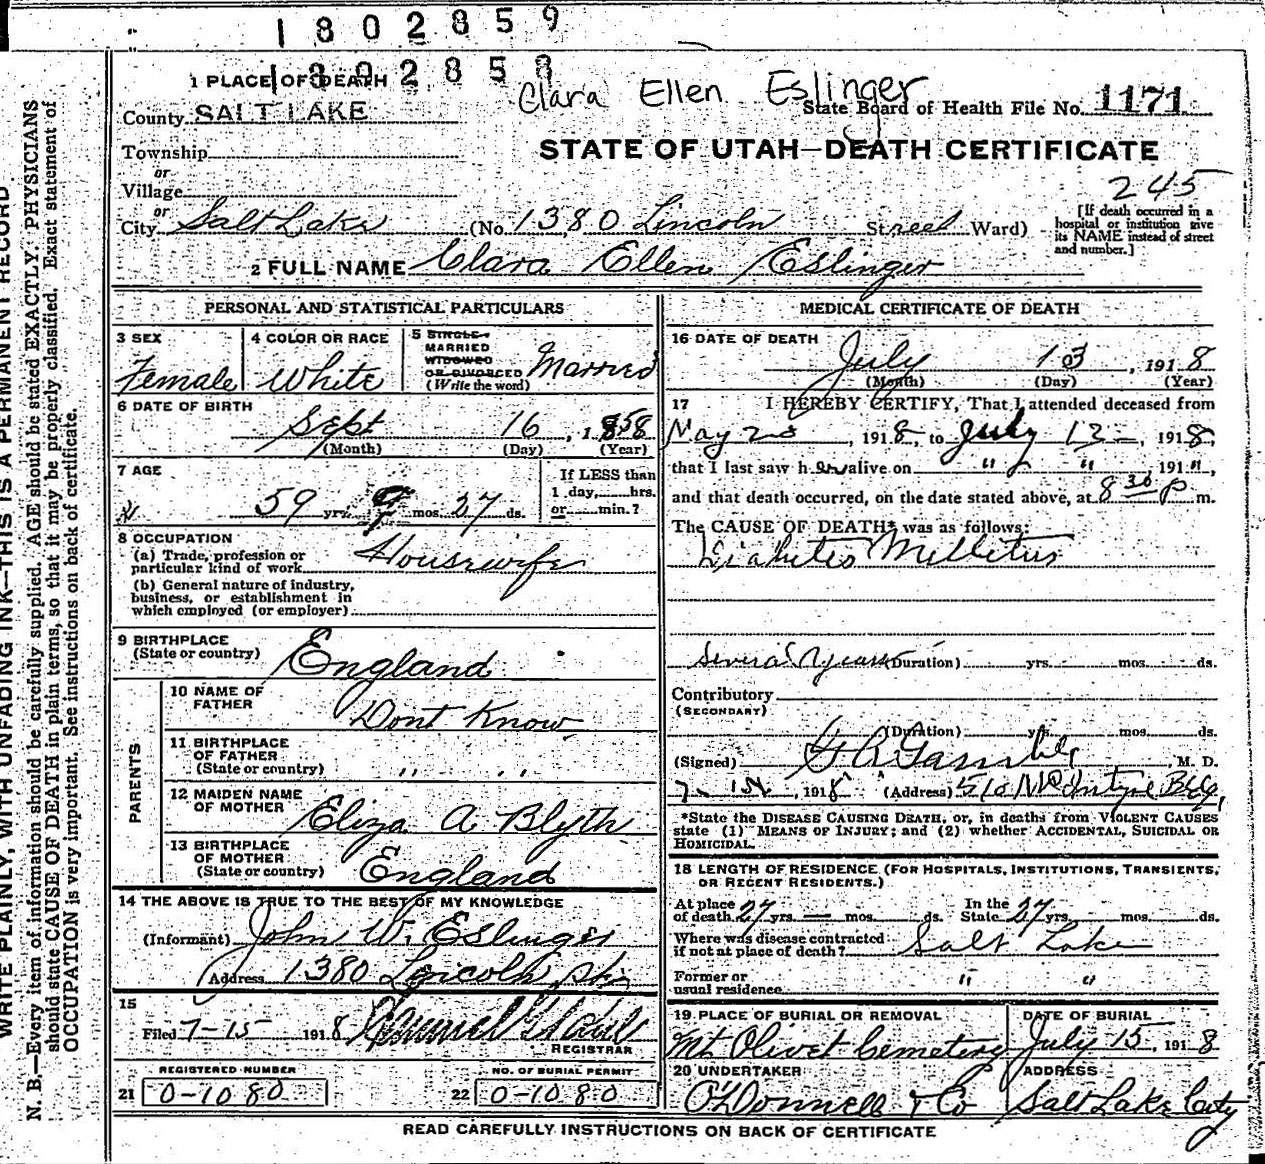 1802859
1802858
Clara Ellen Eslinger
1 PLACE OF DEATH
State Board of Health File No. 1171
County SALT LAKE
STATE OF UTAH—DEATH CERTIFICATE
Township
or
Village
245
or
City Salt Lake (No. 1380 Lincoln Street Ward)
[If death occurred in a
hospital or institution give
its NAME instead of street
and number.]
2 FULL NAME Clara Ellen Eslinger
PERSONAL AND STATISTICAL PARTICULARS
3 SEX
Female
4 COLOR OR RACE
White
5 SINGLE
MARRIED
WIDOWED
OR DIVORCED
(Write the word)
Married
6 DATE OF BIRTH
Sept 16, 1858
(Month) (Day) (Year)
7 AGE
59 yrs. 9 mos. 27 ds.
If LESS than
1 day, hrs.
or min.?
8 OCCUPATION
(a) Trade, profession or
particular kind of work Housewife
(b) General nature of industry,
business, or establishment in
which employed (or employer)
9 BIRTHPLACE
(State or country) England
PARENTS
10 NAME OF
FATHER Dont Know
11 BIRTHPLACE
OF FATHER
(State or country) " "
12 MAIDEN NAME
OF MOTHER Eliza A. Blyth
13 BIRTHPLACE
OF MOTHER
(State or country) England
14 THE ABOVE IS TRUE TO THE BEST OF MY KNOWLEDGE
(Informant) John W. Eslinger
Address 1380 Lincoln St.
15
Filed 7-15 1918
REGISTRAR
REGISTERED NUMBER
21 0-1080
NO. OF BURIAL PERMIT
22 0-1080
MEDICAL CERTIFICATE OF DEATH
16 DATE OF DEATH
July 13, 1918
(Month) (Day) (Year)
17 I HEREBY CERTIFY, That I attended deceased from
May 28, 1918, to July 13, 1918,
that I last saw her alive on " " 191",
and that death occurred, on the date stated above, at 8 30 P m.
The CAUSE OF DEATH* was as follows:
Diabetes Mellitus
Several years (Duration) yrs. mos. ds.
Contributory
(SECONDARY)
(Duration) yrs. mos. ds.
(Signed) M. D.
1918 (Address) 510 McIntyre Bldg.
*State the DISEASE CAUSING DEATH, or, in deaths from VIOLENT CAUSES
state (1) MEANS OF INJURY; and (2) whether ACCIDENTAL, SUICIDAL OR
HOMICIDAL.
18 LENGTH OF RESIDENCE (FOR HOSPITALS, INSTITUTIONS, TRANSIENTS,
OR RECENT RESIDENTS.)
At place
of death 27 yrs. — mos. ds.
In the
State 27 yrs. mos. ds.
Where was disease contracted
if not at place of death? Salt Lake
Former or
usual residence " "
19 PLACE OF BURIAL OR REMOVAL
Mt Olivet Cemetery
DATE OF BURIAL
July 15, 1918
20 UNDERTAKER
O'Donnell & Co
ADDRESS
Salt Lake City
READ CAREFULLY INSTRUCTIONS ON BACK OF CERTIFICATE
WRITE PLAINLY, WITH UNFADING INK—THIS IS A PERMANENT RECORD
N. B.—Every item of information should be carefully supplied. AGE should be stated EXACTLY. PHYSICIANS
should state CAUSE OF DEATH in plain terms, so that it may be properly classified. Exact statement of
OCCUPATION is very important. See instructions on back of certificate.